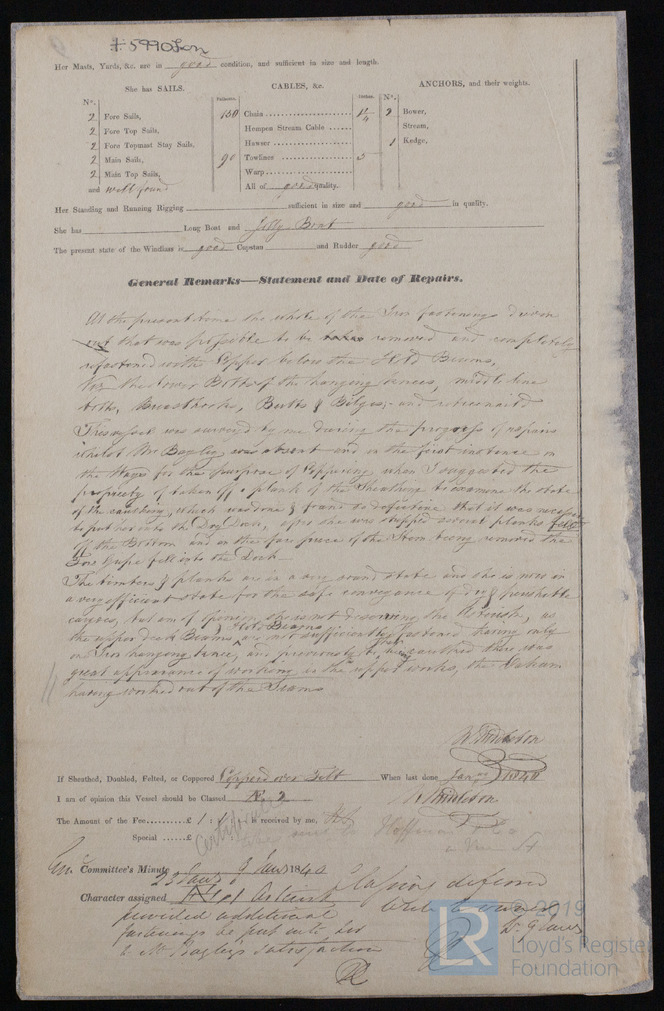 Her Masts, Yards, &c. are in good condition, and sufficient in size and length.
She has SAILS. CABLES, &c. ANCHORS, and their weights.
N°. Fathoms. Inches. N°.
2 Fore Sails, 150 Chain 2 Bower,
2 Fore Top Sails, Hempen Stream Cable Stream,
2 Fore Topmast Stay Sails, Hawser 1 Kedge,
2 Main Sails, 90 Towlines 5
2 Main Top Sails, Warp
and well found All of good quality.
Her Standing and Running Rigging sufficient in size and good in quality.
She has Long Boat and Jolly Boat
The present state of the Windlass is good Capstan and Rudder good
General Remarks—Statement and Date of Repairs.
At the present time the whole of the Iron fastenings driven
out that was possible to be taken removed and completely
refastened with Copper below the Hold Beams,
Viz the lower Bolts of the hanging knees, middle line
bolts, Breasthooks, Butts & Bilges, and
This vessel was surveyed by me during the progress of repairs
whilst Mr Bagley was absent and in the first instance on
the Ways for the purpose of Coppering when I suggested the
propriety of taken off a plank of the Sheathing to examine the state
of the caulking, which was done & found so defective that it was necessary
to put her into the Dry Dock, after she was stripped several planks fell
off the Bottom and on the fore piece of the Stem being removed the
Fore Gripe fell into the Dock
The timbers & planks are in a very sound state and she is now in
a very efficient state for the safe conveyance of dry & perishable
cargoes, but am of opinion she is not deserving the Asterisk, as
the upper deck Beams & Hold Beams are not sufficiently fastened having only
one Iron hanging knee, and previously to her being caulked there was
great appearance of working in the upper works, the Oakum
having worked out of the Seams
If Sheathed, Doubled, Felted, or Coppered Coppered over Felt When last done Jany 1840
I am of opinion this Vessel should be Classed Æ 2
The Amount of the Fee £ 1 is received by me,
Special £
Certificate
Committee's Minute 3 Jany 1840
23 Jany
Character assigned
Classing deferred
provided additional
fastenings be put into her
to Mr Bagley's satisfaction
© 2019
LR
Lloyd's Register
Foundation